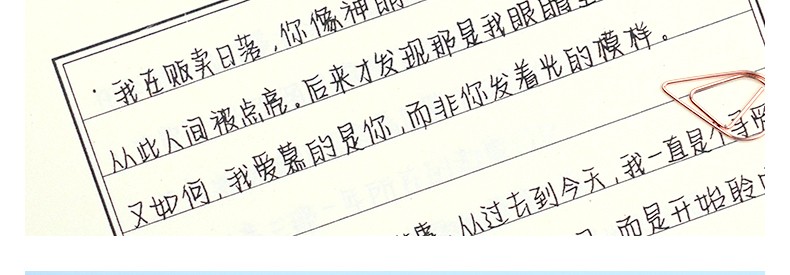 ·我在贩卖日落,你像神明
从此人间被点亮。后来才发现那是我眼睛
又如何,我爱慕的是你,而非你发着光的模样。
从过去到今天,我一直是个
而是开始聆